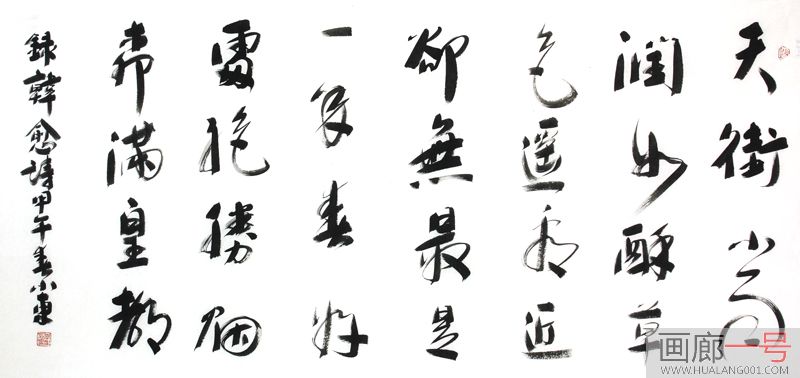 天街小雨
潤如酥草
色遥看近
卻無最是
一年春好
處絶勝烟
柳滿皇都
録韓愈詩甲午春小東
画廊一号
WWW.HUALANG001.COM